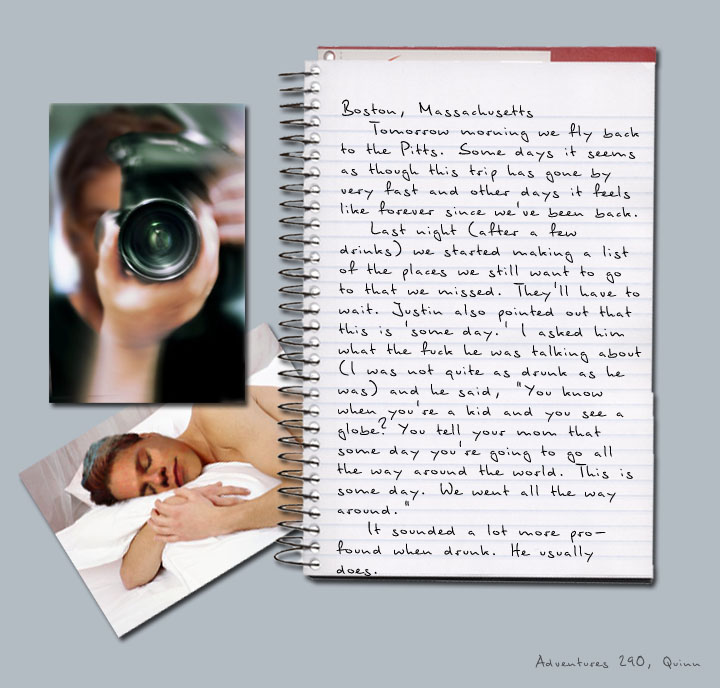 Boston, Massachusetts
Tomorrow morning we fly back
to the Pitts. Some days it seems
as though this trip has gone by
very fast and other days it feels
like forever since we've been back.
Last night (after a few
drinks) we started making a list
of the places we still want to go
to that we missed. They'll have to
wait. Justin also pointed out that
this is 'some day.' I asked him
what the fuck he was talking about
(I was not quite as drunk as he
was) and he said, "You know
when you're a kid and you see a
globe? You tell your mom that
some day you're going to go all
the way around the world. This is
some day. We went all the way
around."
It sounded a lot more pro-
found when drunk. He usually
does.
Adventures 290, Quinn